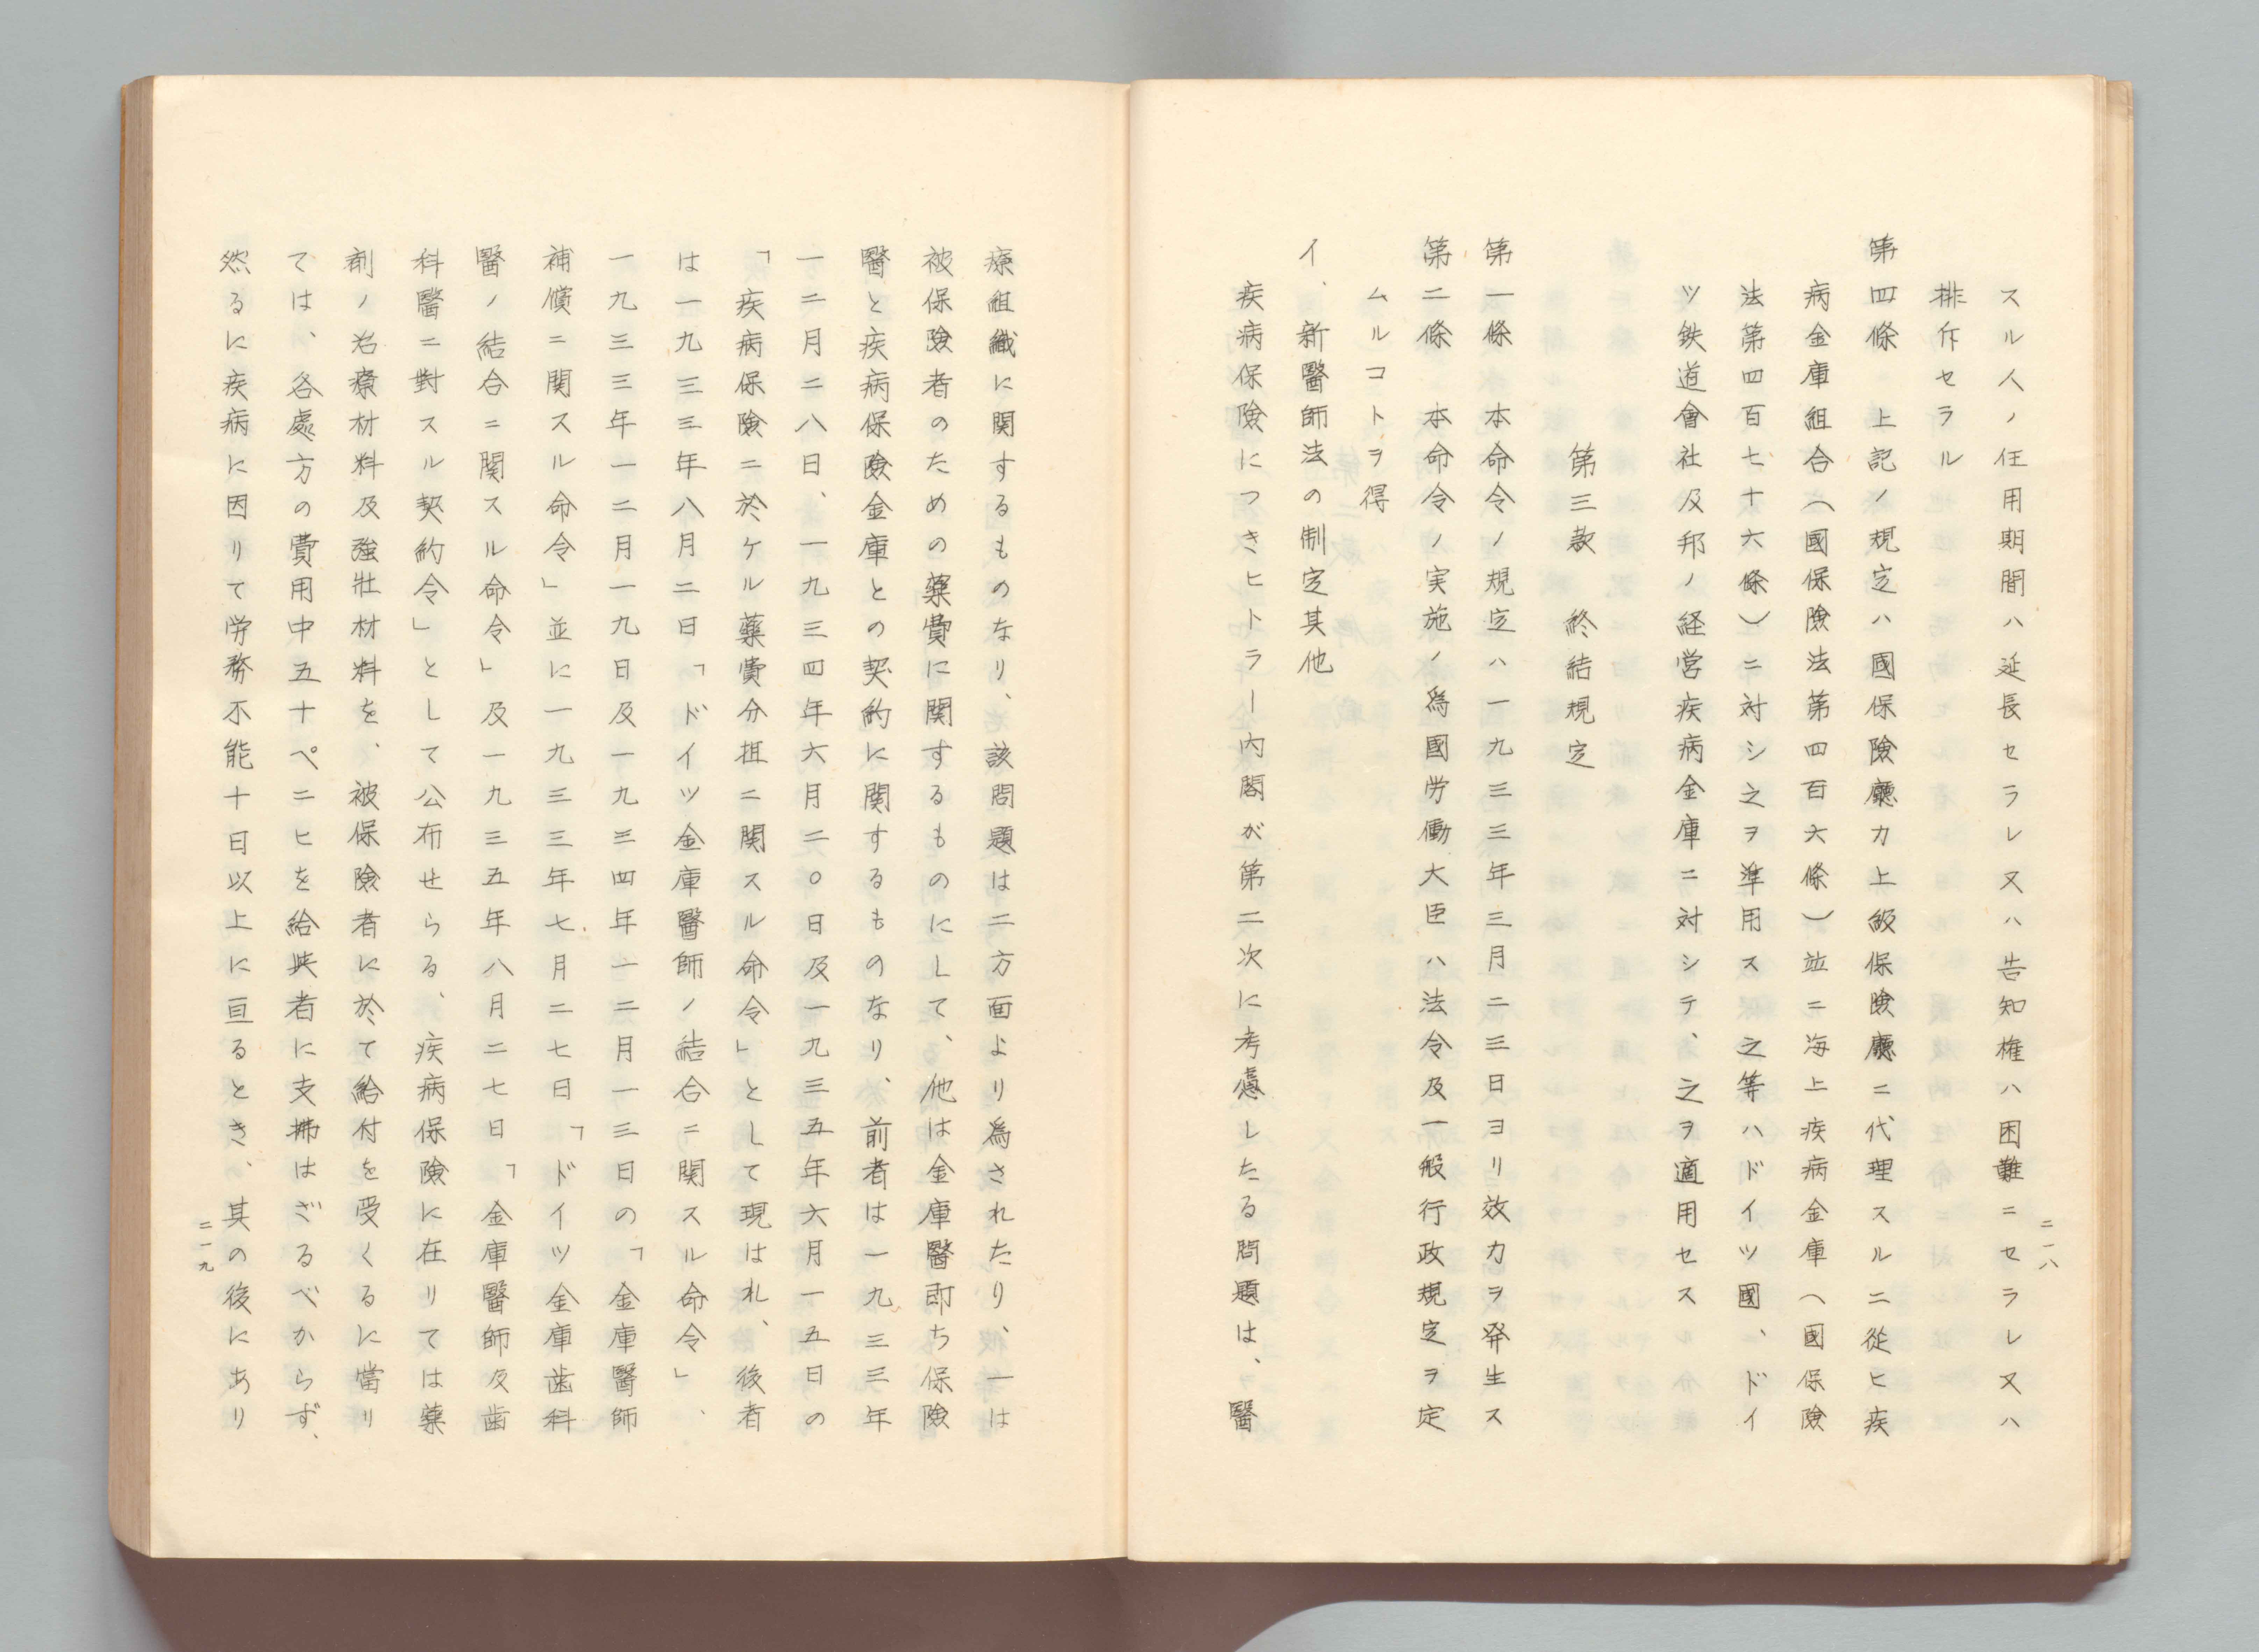 二一八
スル人ノ任用期間ハ延長セラレ又ハ告知権ハ困難ニセラレ又ハ
排斥セラル
第四條　上記ノ規定ハ國保險廳カ上級保險廳ニ代理スルニ從ヒ疾
病金庫組合（國保險法第四百六條）並ニ海上疾病金庫（國保險
法第四百七十六條）ニ対シ之ヲ準用ス之等ハドイツ國、ドイ
ツ鉄道會社及邦ノ経営疾病金庫ニ対シテ、之ヲ適用セス
第三款　終結規定
第一條　本命令ノ規定ハ一九三三年三月二三日ヨリ效力ヲ発生ス
第二條　本命令ノ実施ノ為國労働大臣ハ法令及一般行政規定ヲ定
ムルコトヲ得
イ、新醫師法の制定其他
疾病保險につきヒトラー内閣が第二次に考慮したる問題は、醫
療組織に関するものなり、該問題は二方面より為されたり、一は
被保險者のための藥費に関するものにして、他は金庫醫即ち保險
醫と疾病保險金庫との契約に関するものなり、前者は一九三三年
一二月二八日、一九三四年六月二〇日及一九三五年六月一五日の
「疾病保險ニ於ケル藥費分担ニ関スル命令」として現はれ、後者
は一九三三年八月二日「ドイツ金庫醫師ノ結合ニ関スル命令」、
一九三三年一二月一九日及一九三四年一二月一三日の「金庫醫師
補償ニ関スル命令」並に一九三三年七月二七日「ドイツ金庫歯科
醫ノ結合ニ関スル命令」及一九三五年八月二七日「金庫醫師及歯
科醫ニ對スル契約令」として公布せらる、疾病保險に在りては藥
剤ノ治療材料及強壯材料を、被保險者に於て給付を受くるに當り
ては、各處方の費用中五十ペニヒを給與者に支拂はざるべからず、
然るに疾病に因りて労務不能十日以上に亘るとき、其の後にあり
二一九